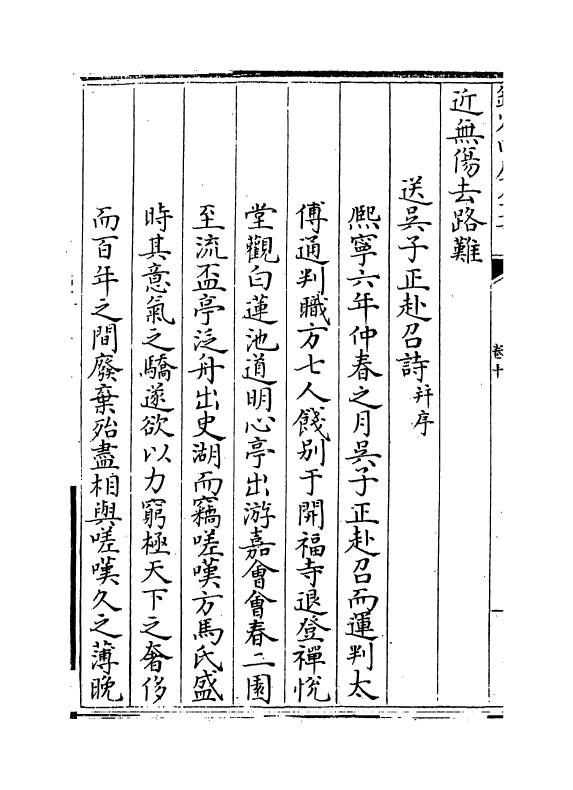 近無傷去路難
送吳子正赴召詩并序
熈寧六年仲春之月吳子正赴召而運判太
傅通判職方七人餞别于開福寺退登禪悅
堂觀白蓮池道明心亭出游嘉會會春二園
至流盃亭泛舟出史湖而竊嗟嘆方馬氏盛
時其意氣之驕遂欲以力窮極天下之奢侈
而百年之間廢棄殆盡相與嗟嘆久之薄晚
卷十